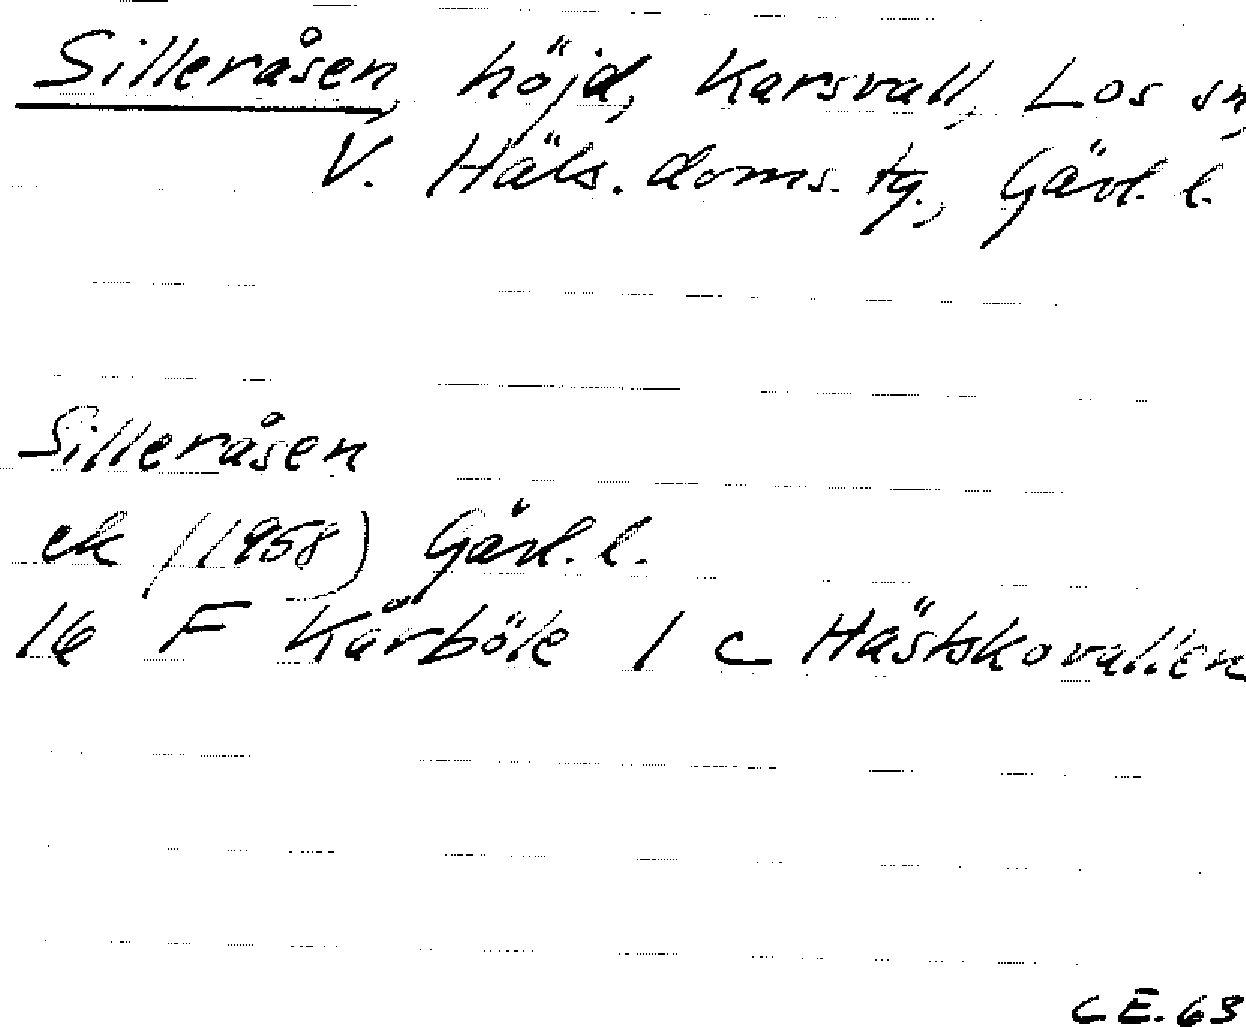 Silleråsen, höjd, Karsvall, Los sn,
V. Häls. doms. tg., Gävl. l.
Silleråsen
ek (1958) Gävl. l.
16 F Kårböle 1 c Hästskovallen
CE. 63